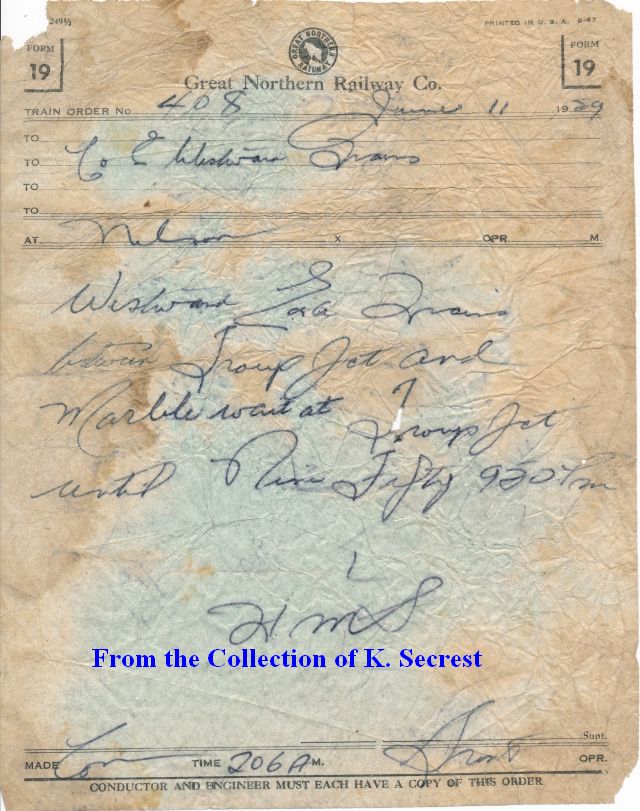 249½
PRINTED IN U. S. A. 8-47
FORM
19
GREAT NORTHERN RAILWAY
FORM
19
Great Northern Railway Co.
TRAIN ORDER No. 408 June 11 1929
TO
TO C&E Westward Trains
TO
TO
AT Nelson X OPR. M.
Westward Exa Trains
between Troup Jct and
Marble wait at Troup Jct
until Nine Fifty 950 Pm
HMS
From the Collection of K. Secrest
Supt.
MADE Com TIME 206A M. OPR.
CONDUCTOR AND ENGINEER MUST EACH HAVE A COPY OF THIS ORDER